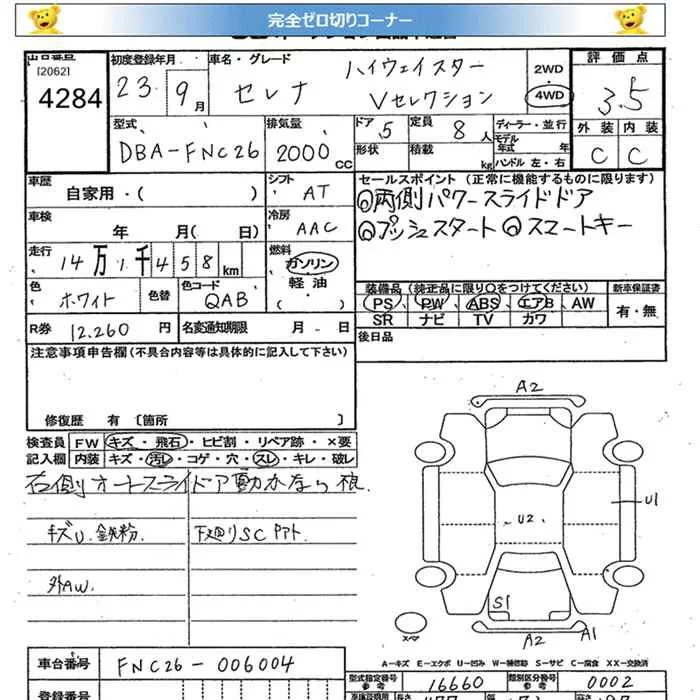 完全ゼロ切りコーナー
出品番号
[2062]
4284
初度登録年月
23. 9月
車名・グレード
ハイウェイスター
セレナ Vセレクション
2WD
4WD
評価点
3.5
外装 内装
C C
型式
DBA-FNC26
排気量
2000 CC
ドア 5
定員 8人
形状
積載 kg
ディーラー・並行
モデル年式 年
ハンドル 左・右
車歴
自家用・( )
シフト
AT
セールスポイント(正常に機能するものに限ります)
◎両側パワースライドドア
◎プッシュスタート ◎スマートキー
車検
年 月( 日)
冷房
AAC
走行
14万1千458km
燃料
ガソリン
軽油
・( )
色
ホワイト
色替
色コード
QAB
装備品(純正品に限り○をつけてください)
PS PW ABS エアB AW
SR ナビ TV カワ
新車保証書
有・無
R券 12,260円
名変通知期限 月 日
後日品
注意事項申告欄(不具合内容等は具体的に記入して下さい)
修復歴 有 〔箇所 〕
検査員記入欄
FW キズ・飛石・ヒビ割・リペア跡・×要
内装 キズ・汚レ・コゲ・穴・スレ・キレ・破レ
右側オートスライドア動かない
キズU. 鉄粉.
下廻りSC
外AW.
A2
U1
U2
S1
A2
A1
A-キズ E-エクボ U-凹み W-補修跡 S-サビ C-腐食 XX-交換済
車台番号
FNC26-006004
型式指定番号
16660
類別区分番号
0002
登録番号